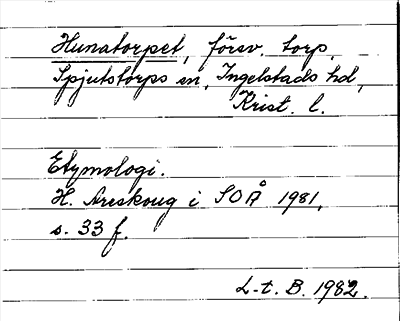 Hunatorpet, försv. torp,
Spjutstorps sn, Ingelstads hd,
Krist. l.
Etymologi.
H. Areskoug i SOÅ 1981,
s. 33 f.
L-t. B. 1982.